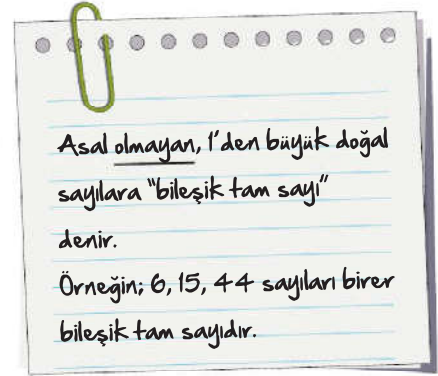 Asal olmayan, 1'den büyük doğal
sayılara "bileşik tam sayı"
denir.
Örneğin; 6, 15, 44 sayıları birer
bileşik tam sayıdır.